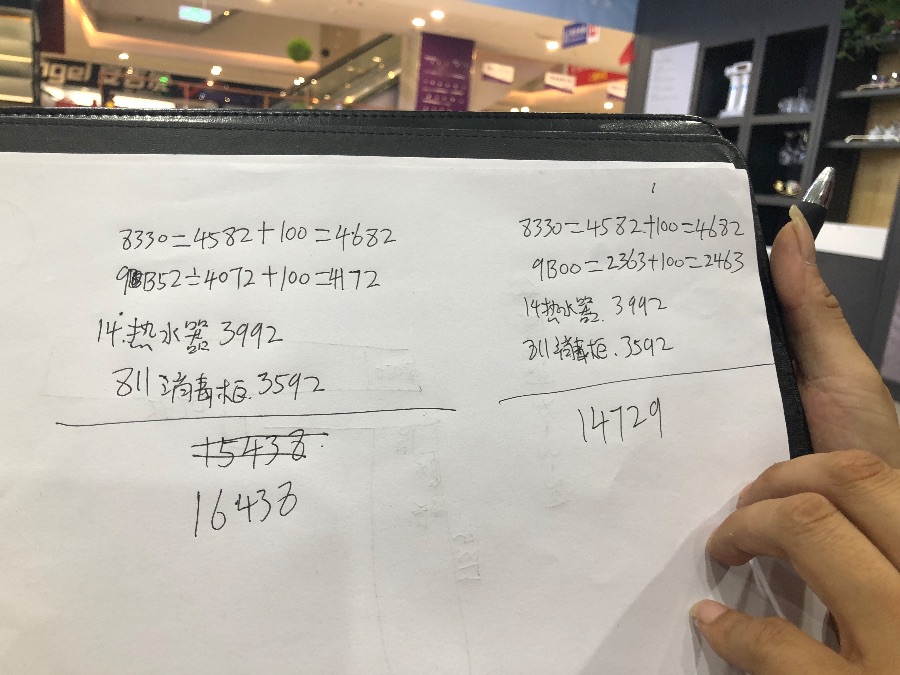 8330=4582+100=4682
9B52=4072+100=4172
14.热水器 3992
811消毒柜.3592
15438
16438
8330=4582+100=4682
9B00=2363+100=2463
14热水器.3992
811消毒柜.3592
14729